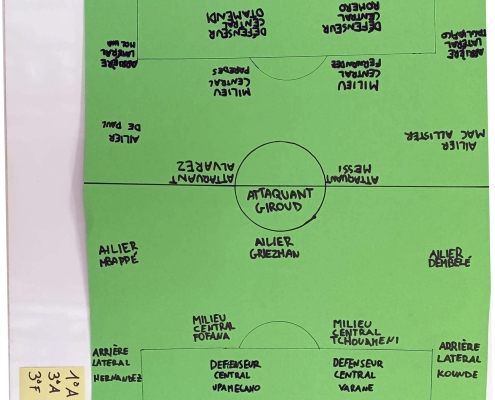 DÉFENSEUR
CENTRAL
OTAMENDI
DÉFENSEUR
CENTRAL
ROMERO
ARRIÈRE
LATÉRAL
MOLINA
ARRIÈRE
LATÉRAL
TAGLIAFICO
MILIEU
CENTRAL
PAREDES
MILIEU
CENTRAL
FERNANDEZ
AILIER
DE PAUL
AILIER
MAC ALLISTER
ATTAQUANT
ALVAREZ
ATTAQUANT
MESSI
ATTAQUANT
GIROUD
AILIER
MBAPPÉ
AILIER
GRIEZMAN
AILIER
DEMBELÉ
MILIEU
CENTRAL
FOFANA
MILIEU
CENTRAL
TCHOUAMENI
ARRIÈRE
LATERAL
HERNANDEZ
DEFFENSEUR
CENTRAL
UPAMECANO
DÉFENSEUR
CENTRAL
VARANE
ARRIÈRE
LATÉRAL
KOUNDE
1°A
3°A
3°F